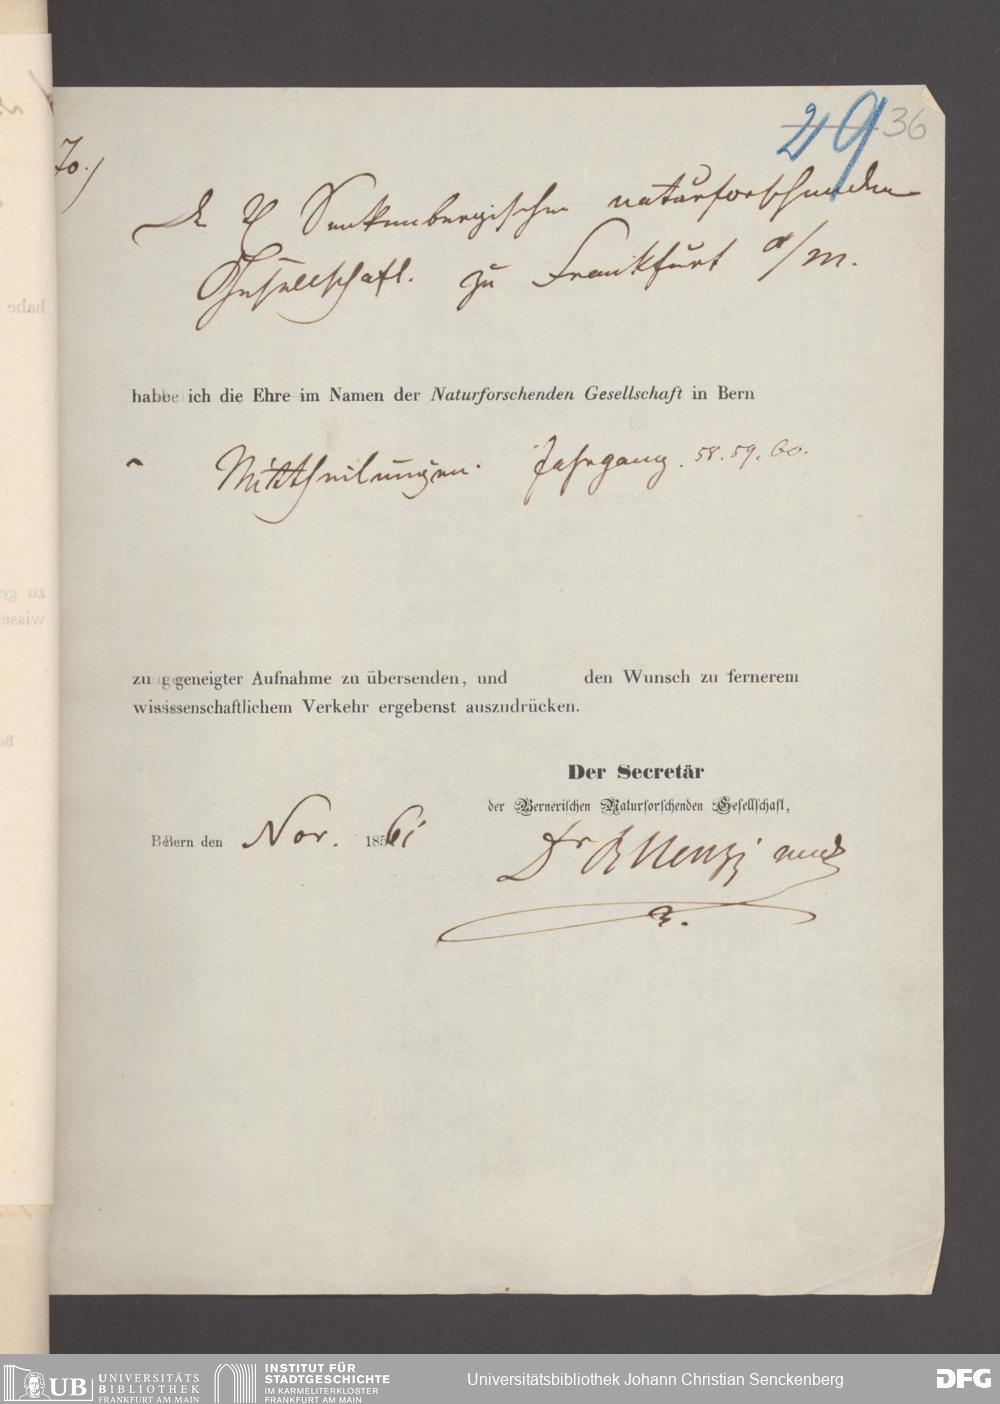 29 36
70.)
Senkenbergischen naturforschenden
Gesellschaft. zu Frankfurt a/m.
habe ich die Ehre im Namen der Naturforschenden Gesellschaft in Bern
Mittheilungen. Jahrgang. 58. 59. 60.
zu geneigter Aufnahme zu übersenden, und den Wunsch zu fernerem
wissenschaftlichem Verkehr ergebenst auszudrücken.
Der Secretär
der Bernerischen Naturforschenden Gesellschaft,
Bern den Nov. 1861
Dr R Henzi
UB UNIVERSITÄTS
BIBLIOTHEK
FRANKFURT AM MAIN
INSTITUT FÜR
STADTGESCHICHTE
IM KARMELITERKLOSTER
FRANKFURT AM MAIN
Universitätsbibliothek Johann Christian Senckenberg
DFG